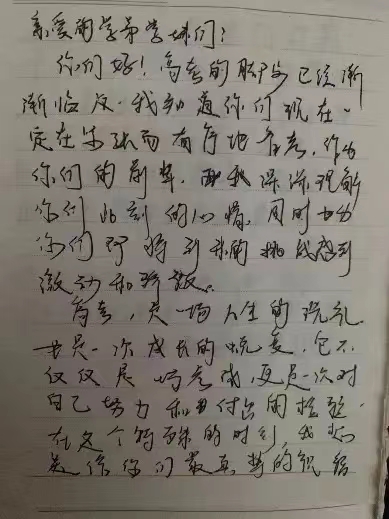 亲爱的学弟学妹们:
你们好!高考的脚步已经渐
渐临近.我知道你们现在一
定在紧张而有序地备考.作为
你们的前辈.我深深理解
你们此刻的心情.同时也为
你们即将到来的挑战感到
激动和骄傲。
高考,是一场人生的洗礼.
也是一次成长的蜕变.它不
仅仅是一场考试,更是一次对
自己努力和付出的检验.
在这个特殊的时刻,我想
送给你们最真挚的祝福